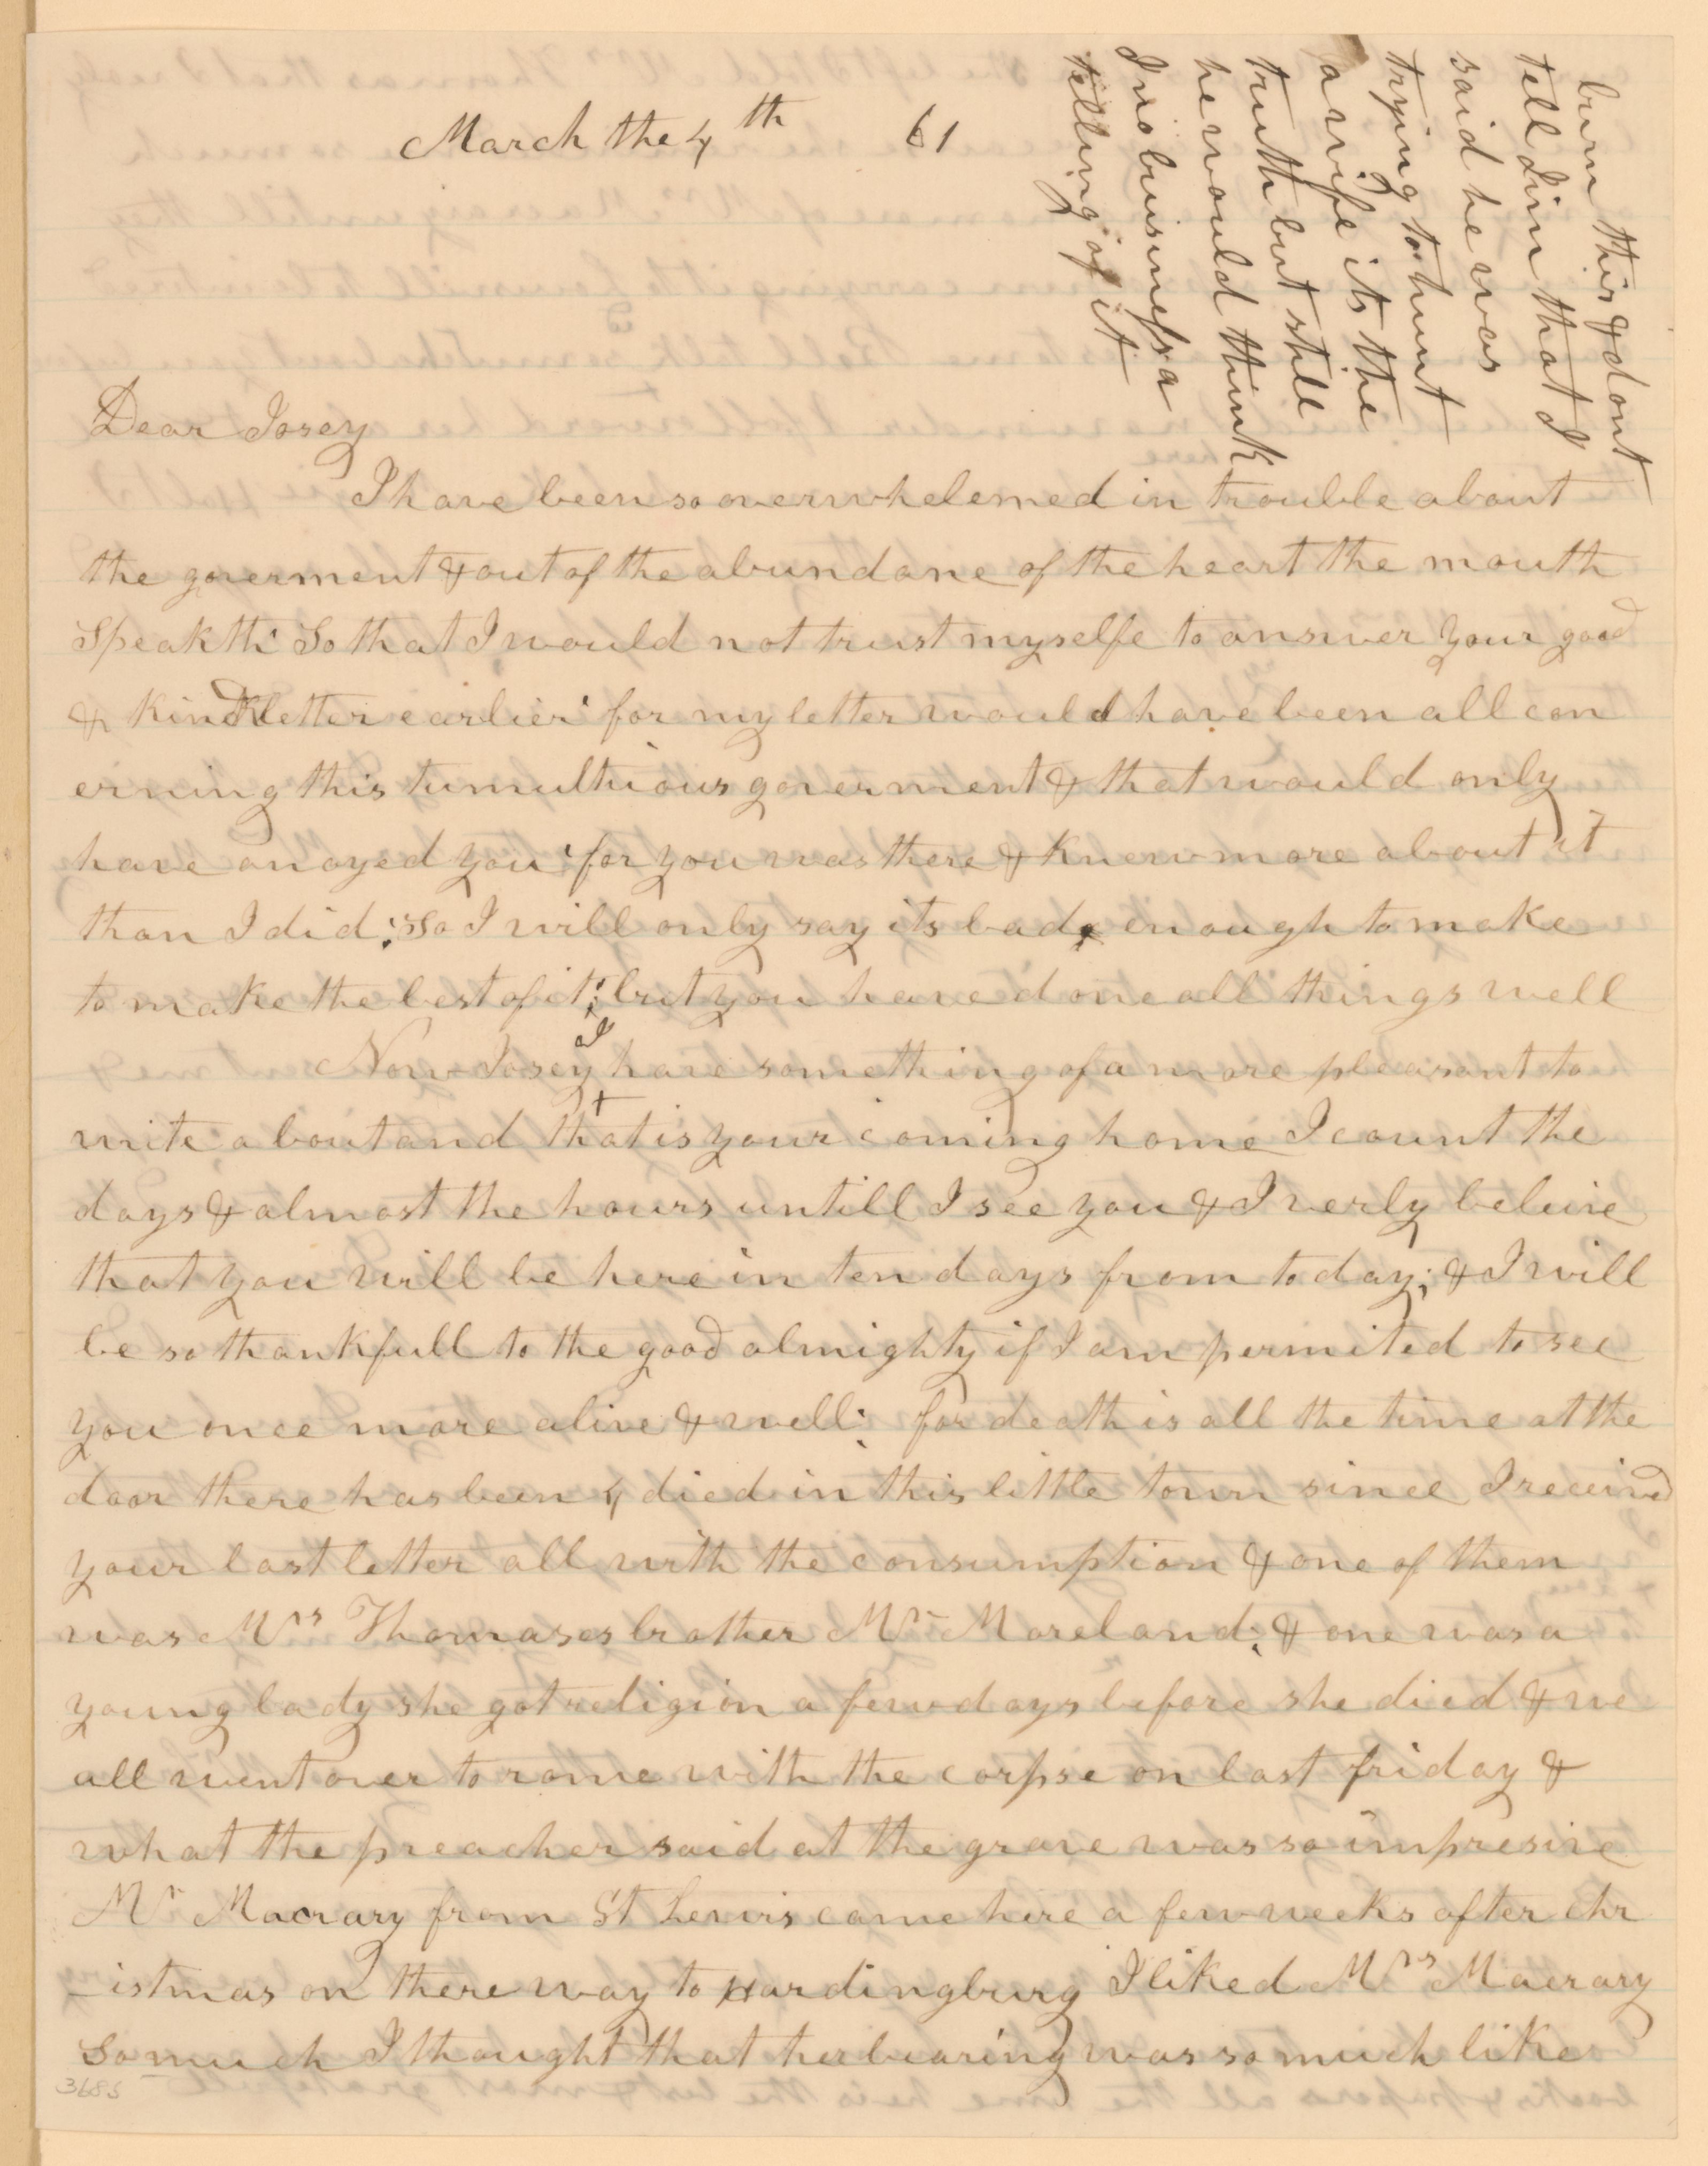 March the 4th 61
burn this & dont
tell Jim that I
said he was
trying to hunt
a wife its the
truth but still
he would think
I no buisiness a
telling of it
Dear Josey
I have been so overwhelemed in trouble about
the goverment & out of the abundane of the heart the mouth
speakth So that I would not trust myselfe to answer your good
& kind letter earlier for my letter would have been all con
erning this tumultious goverment & that would only
have anoyed you for you was there & knew more about it
than I did; So I will only say its bad enough to make
to make the best of it; but you have done all things well
Now Josey I have something of a more pleasant to
write about and that is your coming home I count the
days & almost the hours untill I see you & I verly beleive
that you will be here in ten days from to day; & I will
be so thankfull to the good almighty if I am permited to see
you once more alive & well; for death is all the time at the
door there has been 4 died in this little town since I received
your last letter all with the consumption & one of them
was Mrs Thomases brother Mr Moreland; & one was a
young lady she got religion a few days before she died & we
all went over to rome with the corpse on last friday &
what the preacher said at the grave was so impresive
Mr Macrary from St Lewis came here a few weeks after chr
-istmas on there way to Hardingburg I liked Mrs Macrary
so much I thought that her bearing was so much like
3685